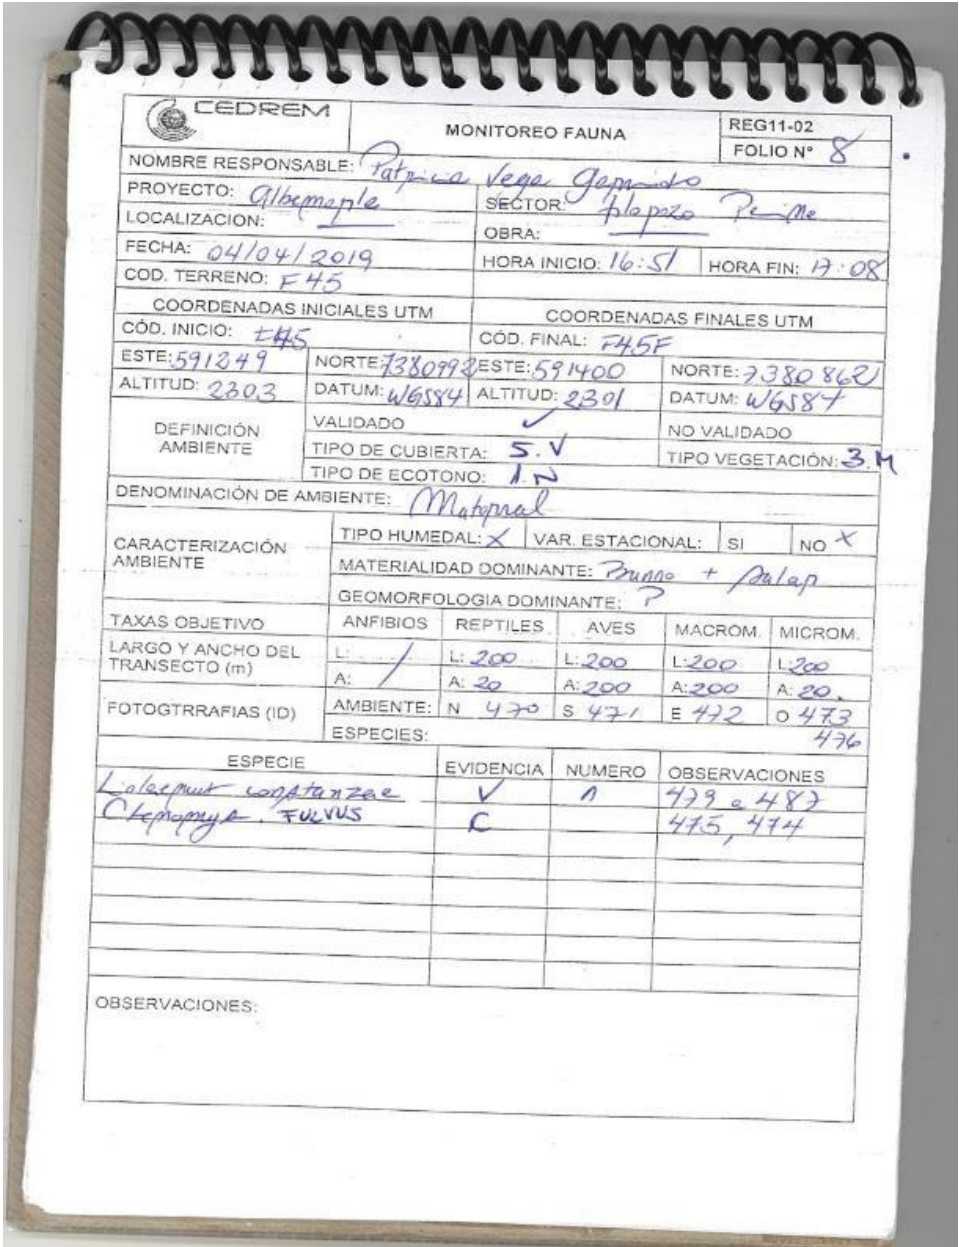 CEDREM
MONITOREO FAUNA
REG11-02
FOLIO N° 8
NOMBRE RESPONSABLE: Patricia Vega Garrido
PROYECTO: Albemarle SECTOR:
LOCALIZACION: OBRA:
FECHA: 04/04/2019 HORA INICIO: 16:51 HORA FIN: 17:08
COD. TERRENO: F45
COORDENADAS INICIALES UTM COORDENADAS FINALES UTM
CÓD. INICIO: CÓD. FINAL: F45F
ESTE: 591249 NORTE: 7380992 ESTE: 591400 NORTE: 7380862
ALTITUD: 2303 DATUM: WGS84 ALTITUD: 2301 DATUM: WGS84
DEFINICIÓN AMBIENTE VALIDADO ✓ NO VALIDADO
TIPO DE CUBIERTA: 5.V TIPO VEGETACIÓN: 3.M
TIPO DE ECOTONO: 1.N
DENOMINACIÓN DE AMBIENTE: Matorral
CARACTERIZACIÓN AMBIENTE TIPO HUMEDAL: X VAR. ESTACIONAL: SI NO X
MATERIALIDAD DOMINANTE: +
GEOMORFOLOGIA DOMINANTE: P
TAXAS OBJETIVO ANFIBIOS REPTILES AVES MACROM. MICROM.
LARGO Y ANCHO DEL TRANSECTO (m) L: / L: 200 L: 200 L: 200 L: 200
A: A: 20 A: 200 A: 200 A: 20.
FOTOGTRRAFIAS (ID) AMBIENTE: N 470 S 471 E 472 O 473
ESPECIES: 476
ESPECIE EVIDENCIA NUMERO OBSERVACIONES
Liolaemus constanzae V 1 479 a 487
Ctenomys. FULVUS C 475, 474
OBSERVACIONES: